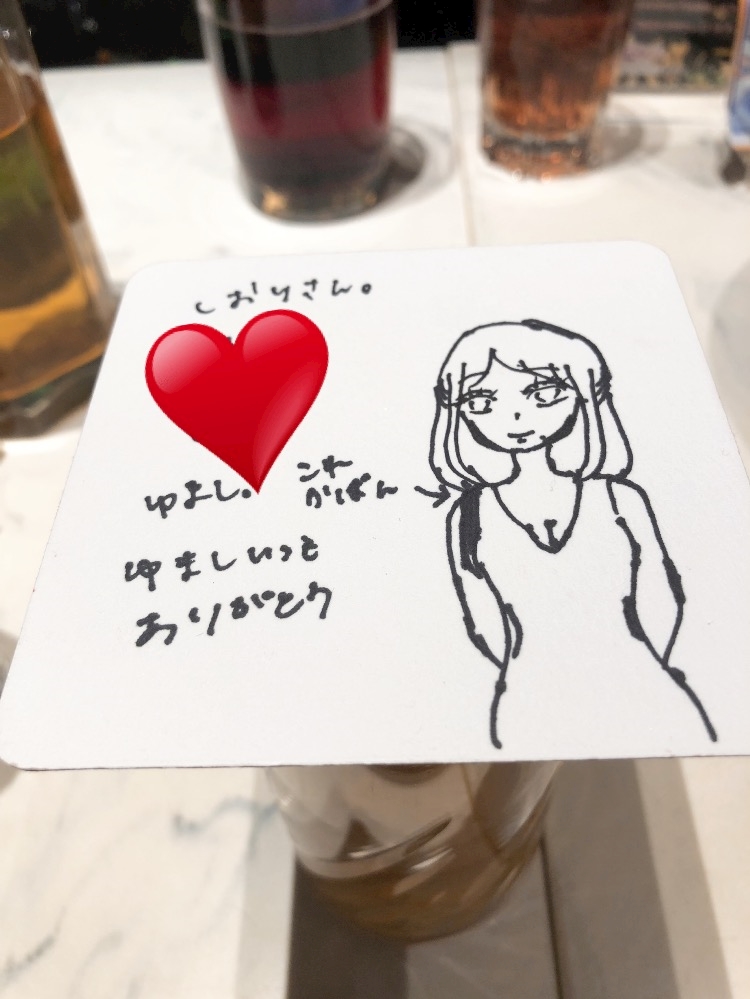 しおりさん。
ゆよし。
これ
かばん
ゆましいっと
ありがとう